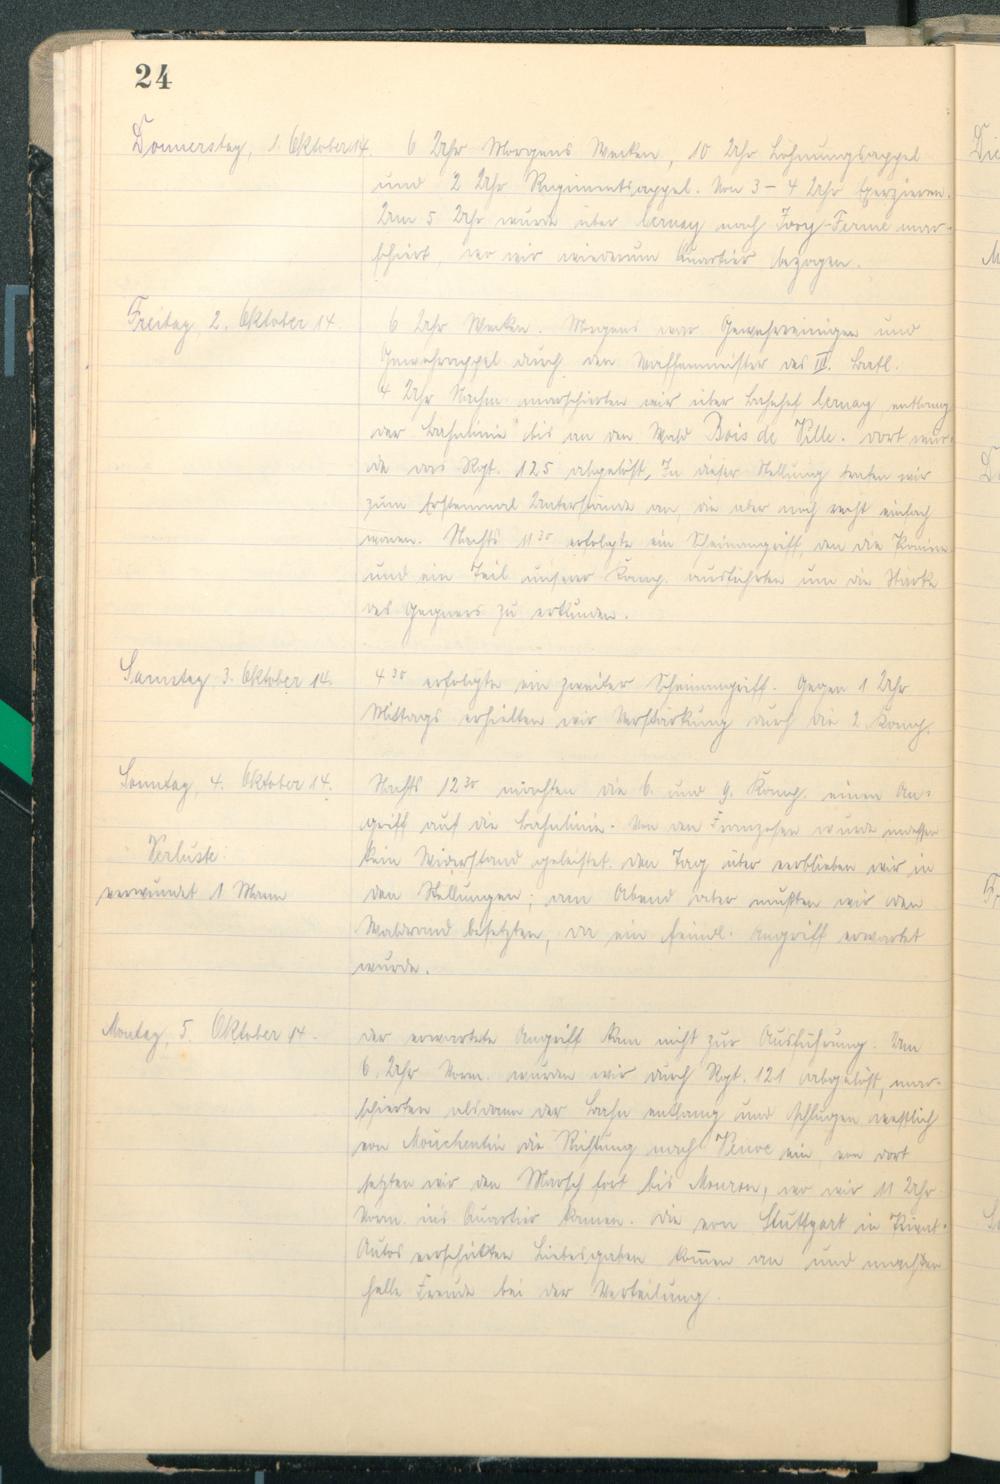 24
Donnerstag, 1. Oktober 14. 6 Uhr Morgens Wecken, 10 Uhr Löhnungsappel
und 2 Uhr Regimentsappel. Von 3–4 Uhr Exerzieren.
Um 5 Uhr wurde über Cernay nach Jvoy-Ferme mar-
schiert, wo wir wiederum Quartier bezogen.
Freitag, 2. Oktober 14. 6 Uhr Wecken. Morgens war Gewehrreinigen und
Gewehrappel durch den Waffenmeister des III. Batl.
4 Uhr Nachm. marschierten wir über Bahnhof Cernay entlang
der Bahnlinie bis an den Wald Bois de Ville. Dort wur-
de das Rgt. 125 abgelöst. In dieser Stellung trafen wir
zum Erstenmal Unterstände an, die aber noch recht einfach
waren. Nachts 11³⁰ erfolgte ein Scheinangriff, den die Pionire
und ein Teil unserer Komp. ausführten um die Stärke
des Gegners zu erkunden.
Samstag, 3. Oktober 14. 4³⁰ erfolgte ein zweiter Scheinangriff. Gegen 1 Uhr
Mittags erhielten wir Verstärkung durch die 2. Komp.
Sonntag, 4. Oktober 14. Nachts 12³⁰ machten die 6. und 9. Komp. einen An-
griff auf die Bahnlinie. Von den Franzosen wurde indessen
Verluste: kein Widerstand geleistet. Den Tag über verblieben wir in
verwundet 1 Mann den Stellungen; am Abend aber mußten wir den
Waldrand besetzten, da ein feindl. Angriff erwartet
wurde.
Montag, 5. Oktober 14. Der erwartete Angriff kam nicht zur Ausführung. Um
6 Uhr Vorm. wurden wir durch Rgt. 121 abgelöst, mar-
schierten alsdann der Bahn entlang und schlugen westlich
von Mouchentin die Richtung nach ein, von dort
setzten wir den Marsch fort bis Mouron, wo wir 11 Uhr
Vorm. ins Quartier kamen. Die von Stuttgart in Privat-
Autos verschickten Liebesgaben kom̅en an und machten
helle Freude bei der Verteilung.